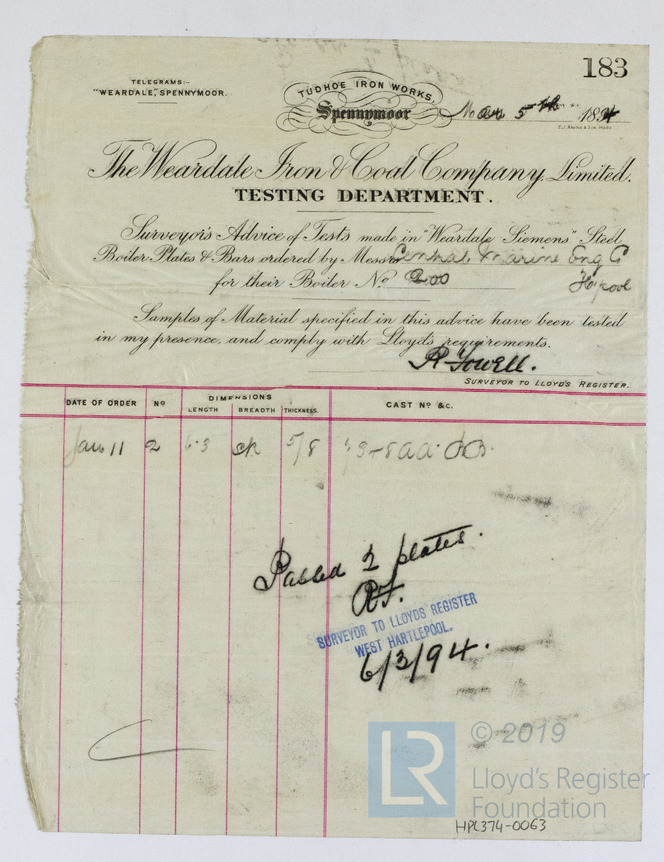 183
TELEGRAMS:-
"WEARDALE, SPENNYMOOR.
TUDHOE IRON WORKS.
Spennymoor
5th 1894
The Weardale Iron & Coal Company, Limited.
TESTING DEPARTMENT.
Surveyor's Advice of Tests made in "Weardale Siemens" Steel
Boiler Plates & Bars ordered by Messrs Central Marine Eng Co
for their Boiler No 200 H'pool
Samples of Material specified in this advice have been tested
in my presence, and comply with Lloyd's requirements.
R Fowell.
SURVEYOR TO LLOYD'S REGISTER.
DATE OF ORDER No DIMENSIONS CAST No &c.
LENGTH BREADTH THICKNESS
Jan 11 2 6·3 5/8
Passed 2 plates.
R.F.
SURVEYOR TO LLOYDS REGISTER
WEST HARTLEPOOL.
6/3/94.
© 2019
LR
Lloyd's Register
Foundation
HPL374-0063